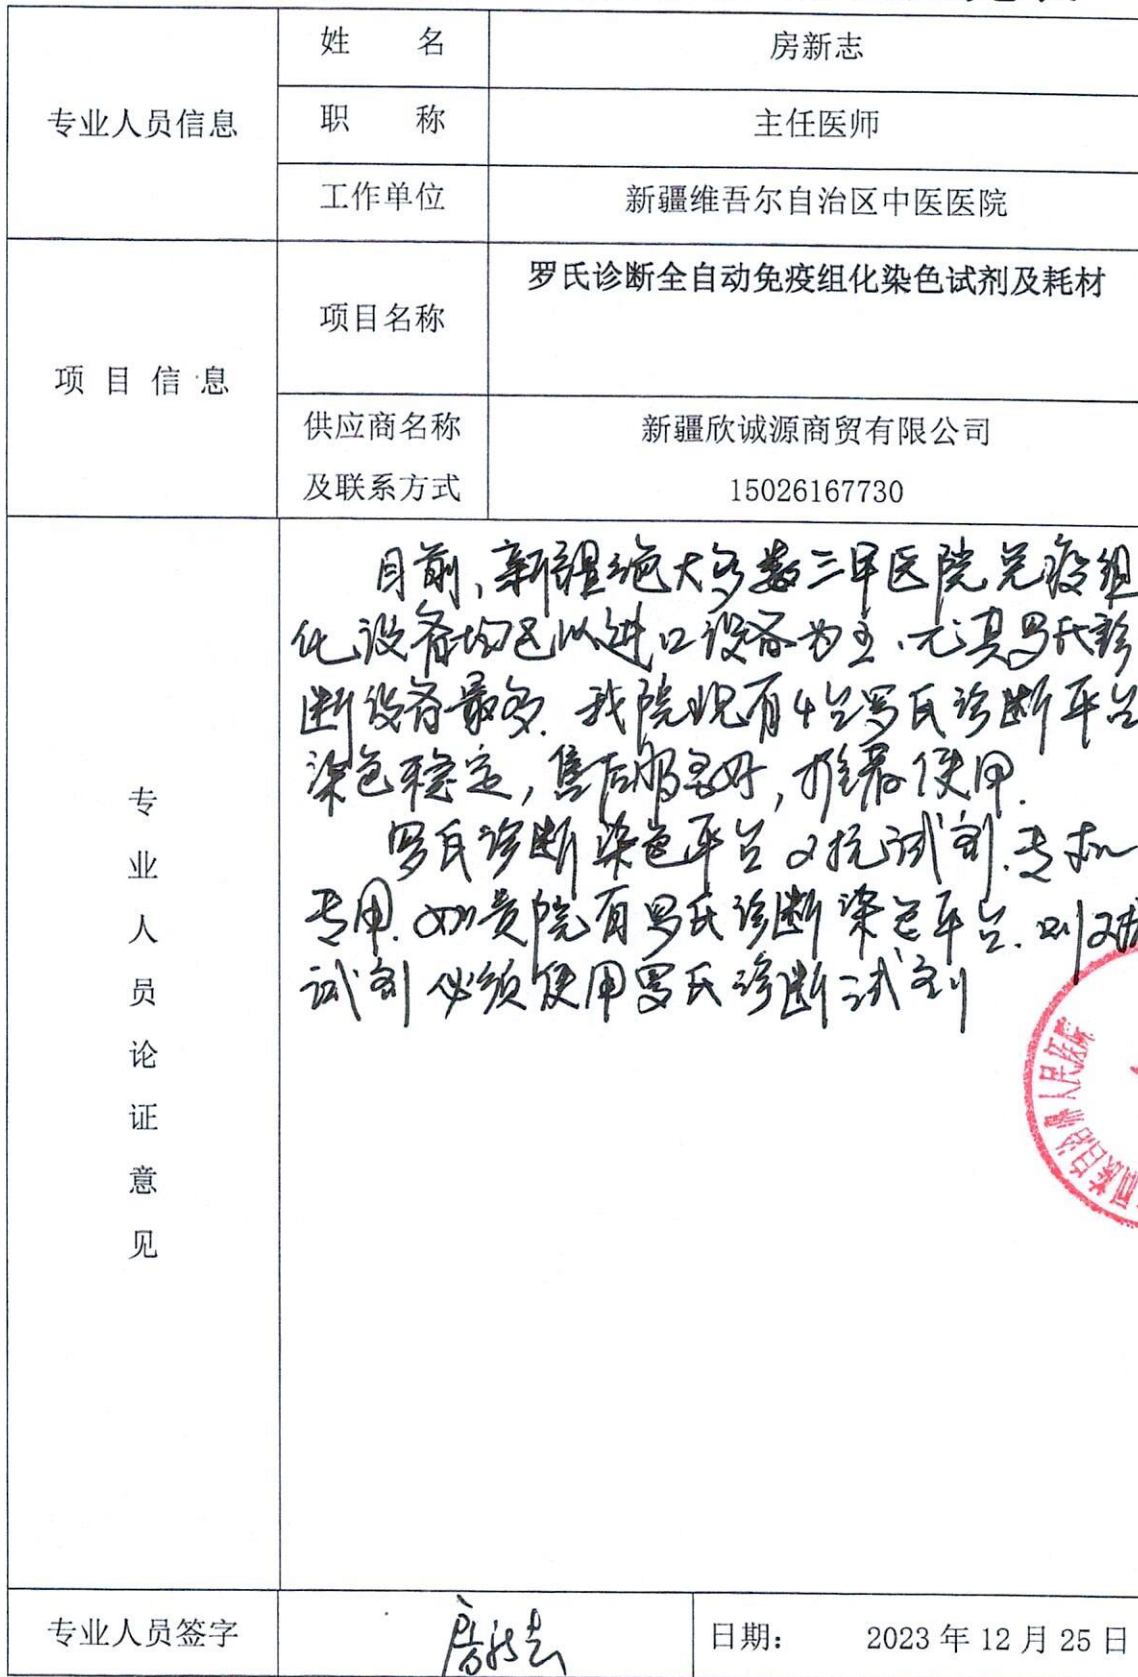 专业人员信息
姓 名
房新志
职 称
主任医师
工作单位
新疆维吾尔自治区中医医院
项目信息
项目名称
罗氏诊断全自动免疫组化染色试剂及耗材
供应商名称
及联系方式
新疆欣诚源商贸有限公司
15026167730
专业人员论证意见
目前,新疆绝大多数三甲医院免疫组
化设备均是以进口设备为主,尤其罗氏诊
断设备最多.我院现有4台罗氏诊断平台
染色稳定,售后服务好,推荐使用.
罗氏诊断染色平台2抗试剂.专机
专用.如贵院有罗氏诊断染色平台.则2抗
试剂必须使用罗氏诊断试剂
自治州人民医院
专业人员签字
房新志
日期: 2023年12月25日